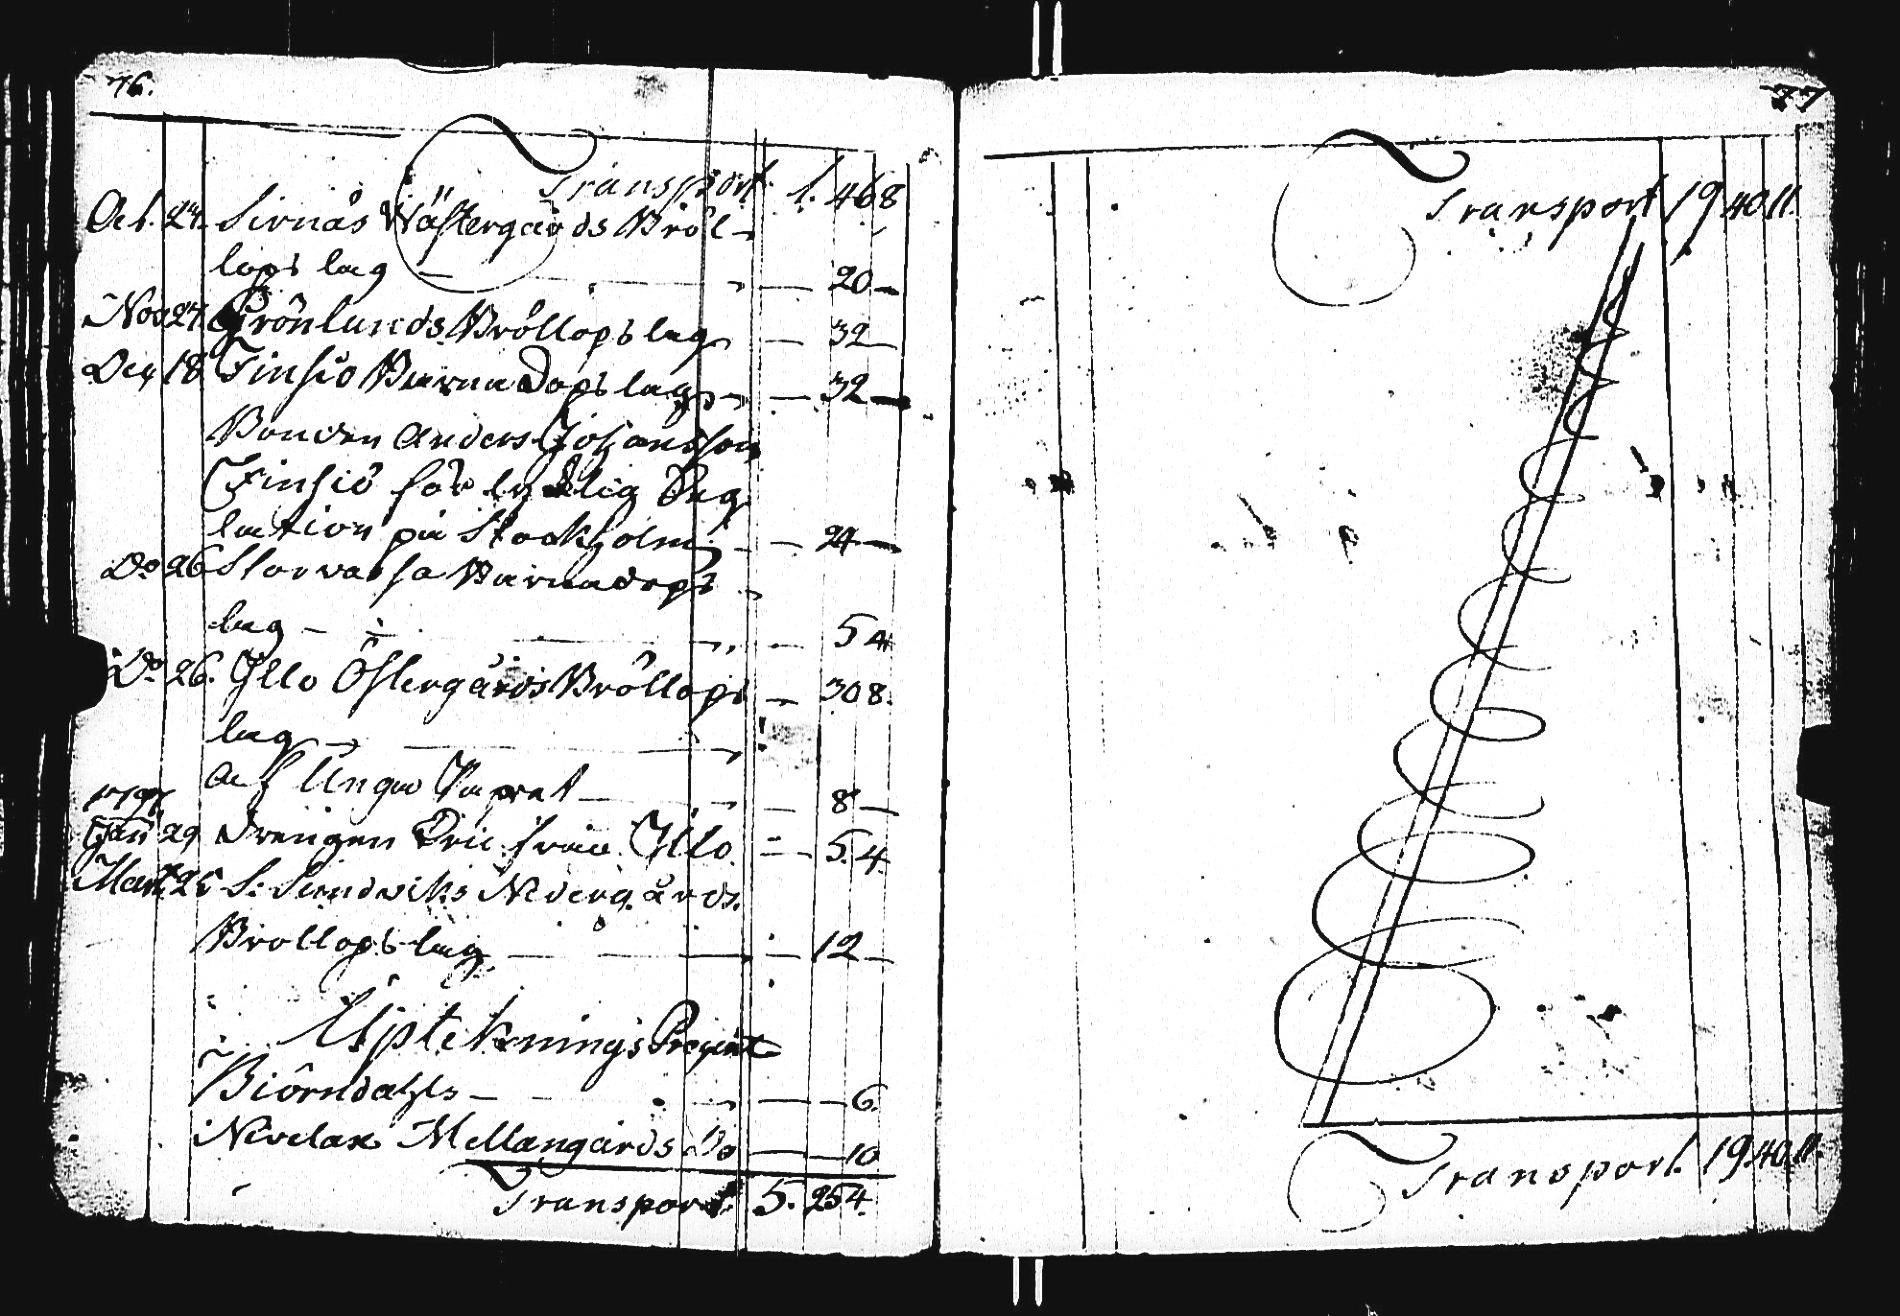 76.
Transport 1. 468
Oct. 24. Sirnäs Wästergårds Bröl-
lops lag 20
Nov 27. Grönlunds Bröllops lag 32
Dec 18 Finsiö Barna Dops lag 32
Bonden Anders Johansson
Finsiö för
lation på Stockholm 24
Do 26 Storvassa Barnadops
lag 54
Do 26. Yllo Östergårds Bröllops 308.
lag
af Unga Paret 8
1797
Jan 29 Drengen Eric från Yllo. 5.4.
Mart. 25 S: Sundwiks Nedergårds.
Bröllops lag 12
Upteknings
Biörndahls 6.
Nivelax Mellangårds Do 10
Transport. 5. 254.
77
Transport 19 40.11.
Transport. 19.40.11.